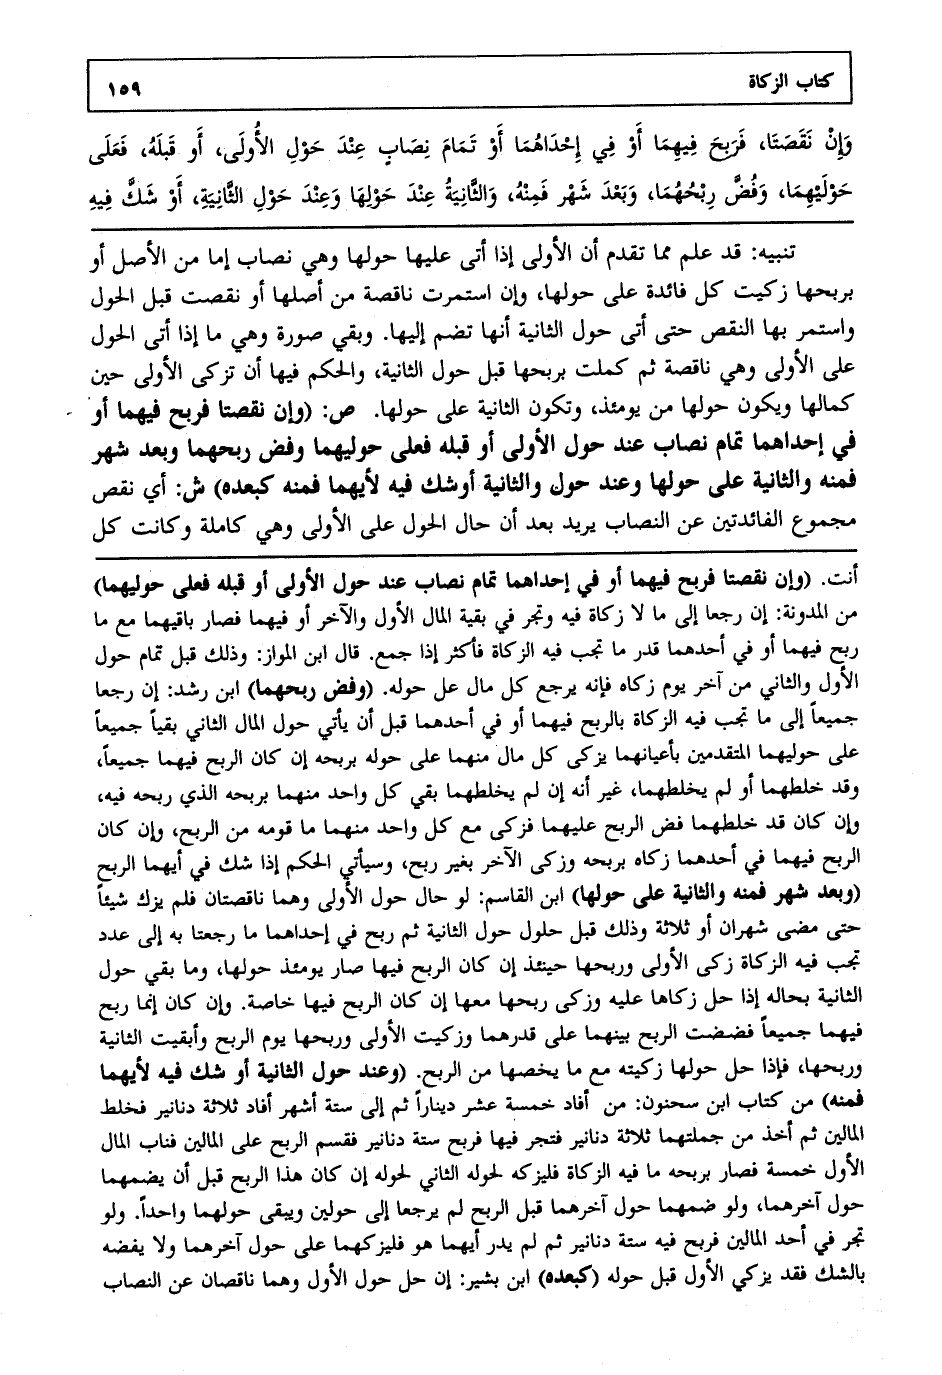 كتاب الزكاة ١٥٩
وَإِنْ نَقَصَتَا، فَرَبِحَ فِيهِمَا أَوْ فِي إِحْدَاهُمَا أَوْ تَمَامَ نِصَابٍ عِنْدَ حَوْلِ الأُولَى، أَو قَبْلَهُ، فَعَلَى
حَوْلَيْهِمَا، وَفُضَّ رِبْحُهُمَا، وَبَعْدَ شَهْرٍ فَمِنْهُ، وَالثَّانِيَةُ عِنْدَ حَوْلِهَا وَعِنْدَ حَوْلِ الثَّانِيَةِ، أَوْ شَكَّ فِيهِ
تنبيه: قد علم مما تقدم أن الأولى إذا أتى عليها حولها وهي نصاب إما من الأصل أو
بربحها زكيت كل فائدة على حولها، وإن استمرت ناقصة من أصلها أو نقصت قبل الحول
واستمر بها النقص حتى أتى حول الثانية أنها تضم إليها. وبقي صورة وهي ما إذا أتى الحول
على الأولى وهي ناقصة ثم كملت بربحها قبل حول الثانية، والحكم فيها أن تزكى الأولى حين
كمالها ويكون حولها من يومئذ، وتكون الثانية على حولها. ص: (وإن نقصتا فربح فيهما أو
في إحداهما تمام نصاب عند حول الأولى أو قبله فعلى حوليهما وفض ربحهما وبعد شهر
فمنه والثانية على حولها وعند حول والثانية أوشك فيه لأيهما فمنه كبعده) ش: أي نقص
مجموع الفائدتين عن النصاب يريد بعد أن حال الحول على الأولى وهي كاملة وكانت كل
أنت. (وإن نقصتا فربح فيهما أو في إحداهما تمام نصاب عند حول الأولى أو قبله فعلى حوليهما)
من المدونة: إن رجعا إلى ما لا زكاة فيه وتجر في بقية المال الأول والآخر أو فيهما فصار باقيهما مع ما
ربح فيهما أو في أحدهما قدر ما تجب فيه الزكاة فأكثر إذا جمع. قال ابن المواز: وذلك قبل تمام حول
الأول والثاني من آخر يوم زكاه فإنه يرجع كل مال عل حوله. (وفض ربحهما) ابن رشد: إن رجعا
جميعاً إلى ما تجب فيه الزكاة بالربح فيهما أو في أحدهما قبل أن يأتي حول المال الثاني بقياً جميعاً
على حوليهما المتقدمين بأعيانهما يزكى كل مال منهما على حوله بربحه إن كان الربح فيهما جميعاً،
وقد خلطهما أو لم يخلطهما، غير أنه إن لم يخلطهما بقي كل واحد منهما بربحه الذي ربحه فيه،
وإن كان قد خلطهما فض الربح عليهما فزكى مع كل واحد منهما ما قومه من الربح، وإن كان
الربح فيهما في أحدهما زكاه بربحه وزكى الآخر بغير ربح، وسيأتي الحكم إذا شك في أيهما الربح
(وبعد شهر فمنه والثانية على حولها) ابن القاسم: لو حال حول الأولى وهما ناقصتان فلم يزك شيئاً
حتى مضى شهران أو ثلاثة وذلك قبل حلول حول الثانية ثم ربح في إحداهما ما رجعتا به إلى عدد
تجب فيه الزكاة زكى الأولى وربحها حينئذ إن كان الربح فيها صار يومئذ حولها، وما بقي حول
الثانية بحاله إذا حل زكاها عليه وزكى ربحها معها إن كان الربح فيها خاصة. وإن كان إنما ربح
فيهما جميعاً فضضت الربح بينهما على قدرهما وزكيت الأولى وربحها يوم الربح وأبقيت الثانية
وربحها، فإذا حل حولها زكيته مع ما يخصها من الربح. (وعند حول الثانية أو شك فيه لأيهما
فمنه) من كتاب ابن سحنون: من أفاد خمسة عشر ديناراً ثم إلى ستة أشهر أفاد ثلاثة دنانير فخلط
المالين ثم أخذ من جملتهما ثلاثة دنانير فتجر فيها فربح ستة دنانير فقسم الربح على المالين فناب المال
الأول خمسة فصار بربحه ما فيه الزكاة فليزكه لحوله الثاني لحوله إن كان هذا الربح قبل أن يضمهما
حول آخرهما، ولو ضمهما حول آخرهما قبل الربح لم يرجعا إلى حولين ويبقى حولهما واحداً. ولو
تجر في أحد المالين فربح فيه ستة دنانير ثم لم يدر أيهما هو فليزكهما على حول آخرهما ولا يفضه
بالشك فقد يزكي الأول قبل حوله (كبعده) ابن بشير: إن حل حول الأول وهما ناقصان عن النصاب